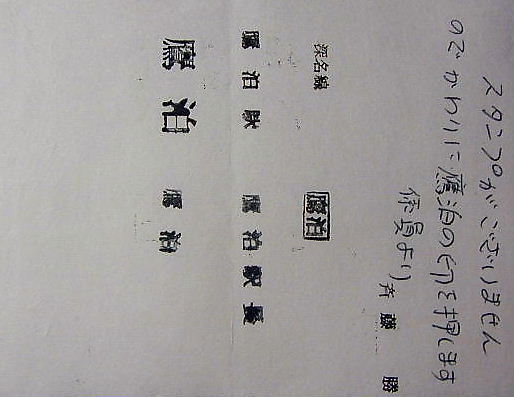 スタンプがございません
のでかわりに鷹泊の印を押します
係員より
斉藤 勝
深名線
鷹泊
鷹泊駅
鷹泊駅長
鷹泊
鷹泊